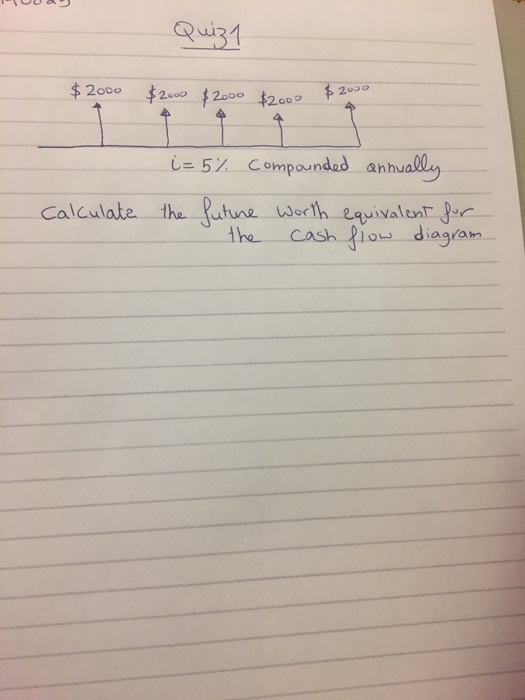 Quiz 1
$ 2000 $ 2000 $ 2000 $2000 $ 2000
i = 5% Compounded annually
Calculate the future worth equivalent for
the cash flow diagram